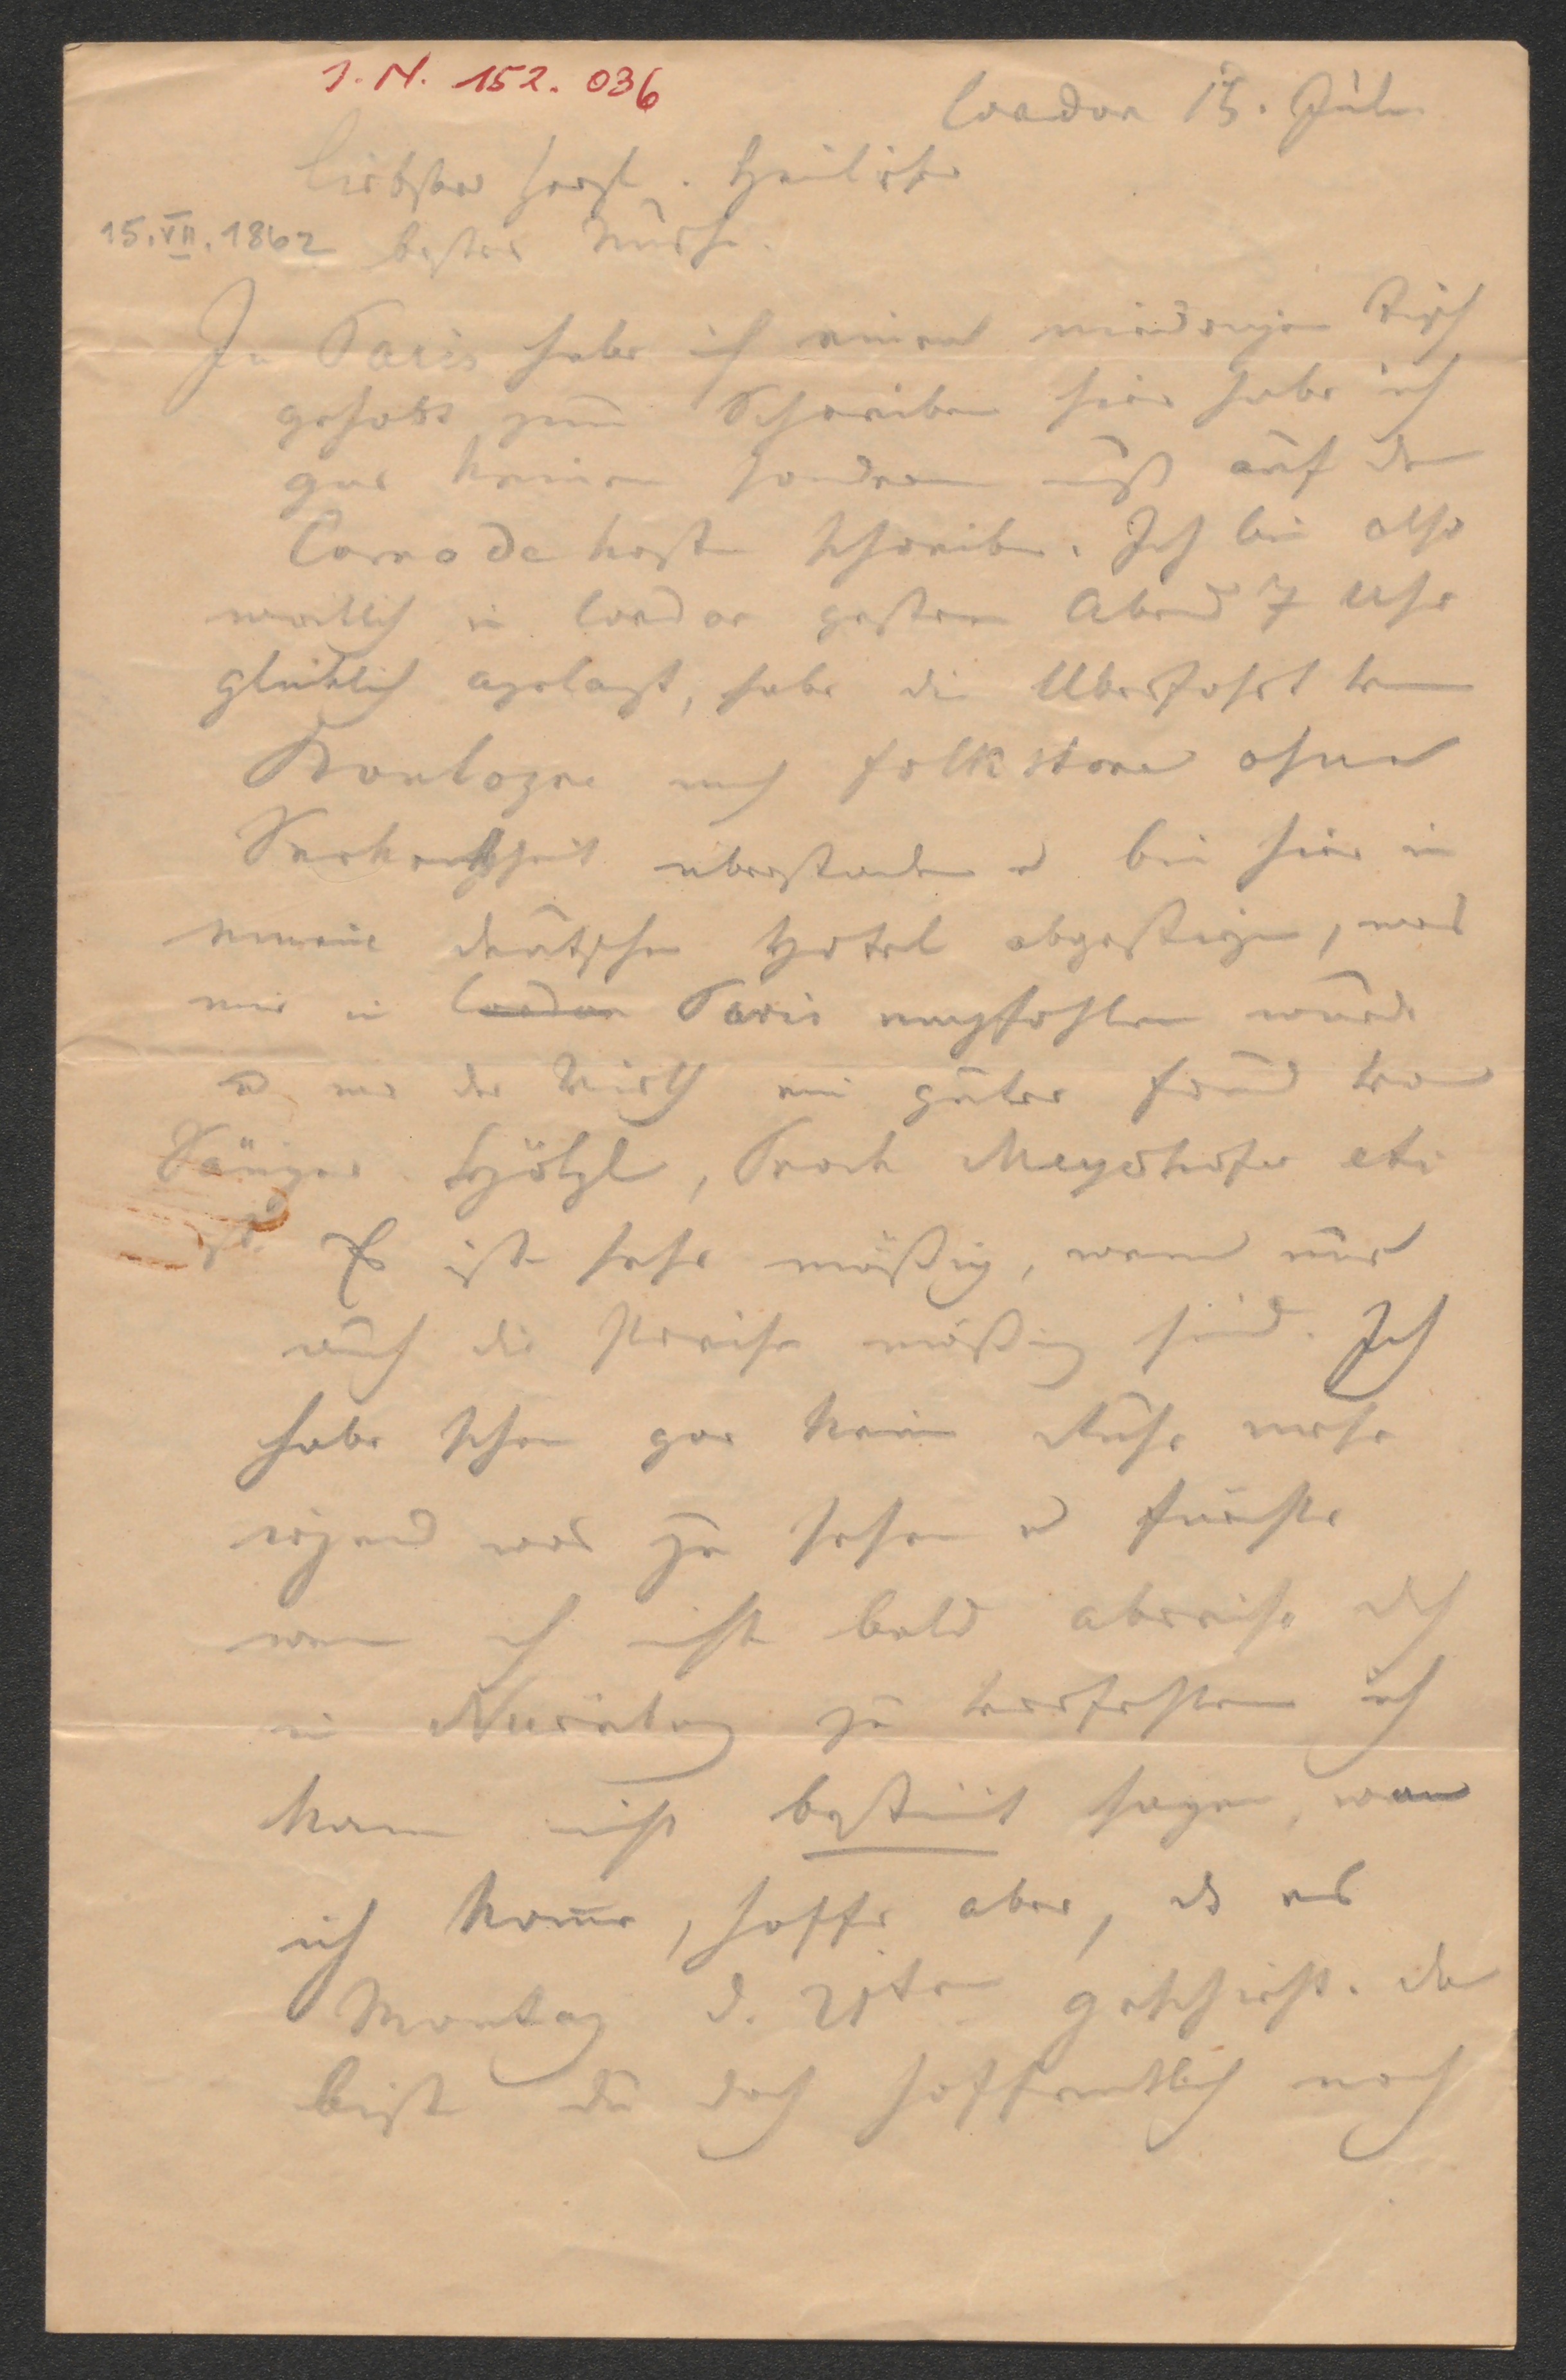 I. N. 152. 036
London 15. Juli
Liebster Herzl. Heiliger
15.VII.1862 bester
In Paris habe ich einen niedrigen Tisch
gehabt zum Schreiben hier habe ich
gar keinen sondern muß auf dem
Comode kasten schreiben. Ich bin also
wirklich in London gestern Abend 7 Uhr
glücklich angelangt, habe die Uberfahrt von
Boulogne nach Folkstone ohne
Seekrankheit uberstanden u bin hier in
einem deutschen Hotel abgestiegen, was
mir in London Paris empfohlen wurde
u wo der Wirth ein guter Freund von
Sänger Hölzl, Proch Meyerhofer etc
ist. Es ist sehr mäßig, wenn nur
auch die Preise mäßig sind. Ich
habe schon gar keine Ruhe mehr
irgend was zu sehen u fürchte
wenn ich nicht bald abreise dich
in Nürnberg zu verfehlen ich
kann nicht bestimt sagen, wann
ich komme, hoffe aber, ds es
Montag d. 21ten geschieht. da
bist du doch hoffentlich noch